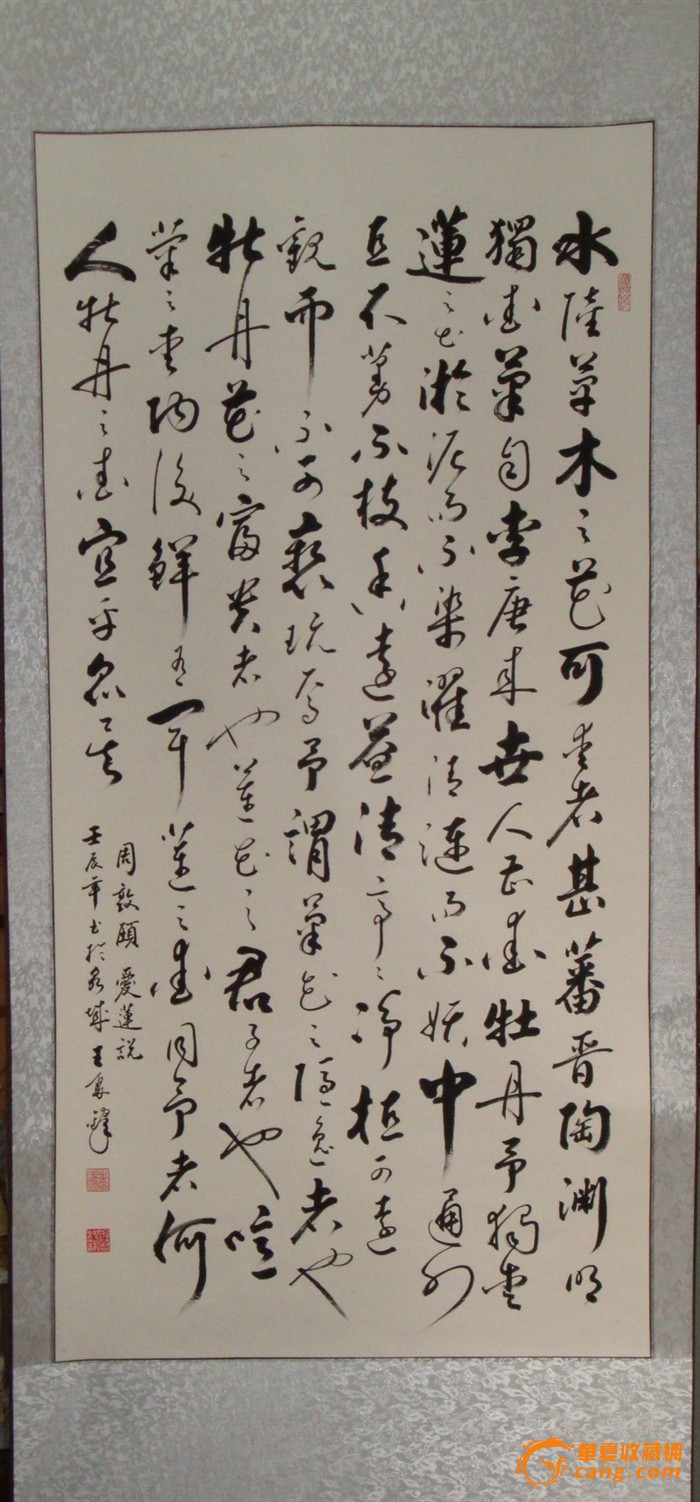 水陸草木之花可爱者甚蕃晋陶渊明
獨爱菊自李唐来世人甚爱牡丹予獨爱
蓮之出淤泥而不染濯清漣而不妖中通外
直不蔓不枝香遠益清亭々净植可遠
觀而不可褻玩焉予謂菊花之隱逸者也
牡丹花之富贵者也蓮花之君子者也噫
菊之爱陶後鮮有闻蓮之爱同予者何
人牡丹之爱宜乎众矣
周敦頤 愛蓮説
壬辰年书於泉城 王
華夏收藏網
cang.com